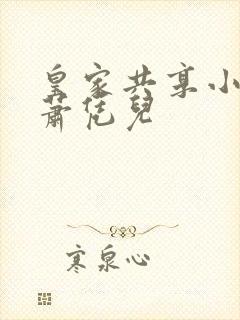 皇家共享小
蕭恁兒
寒泉心